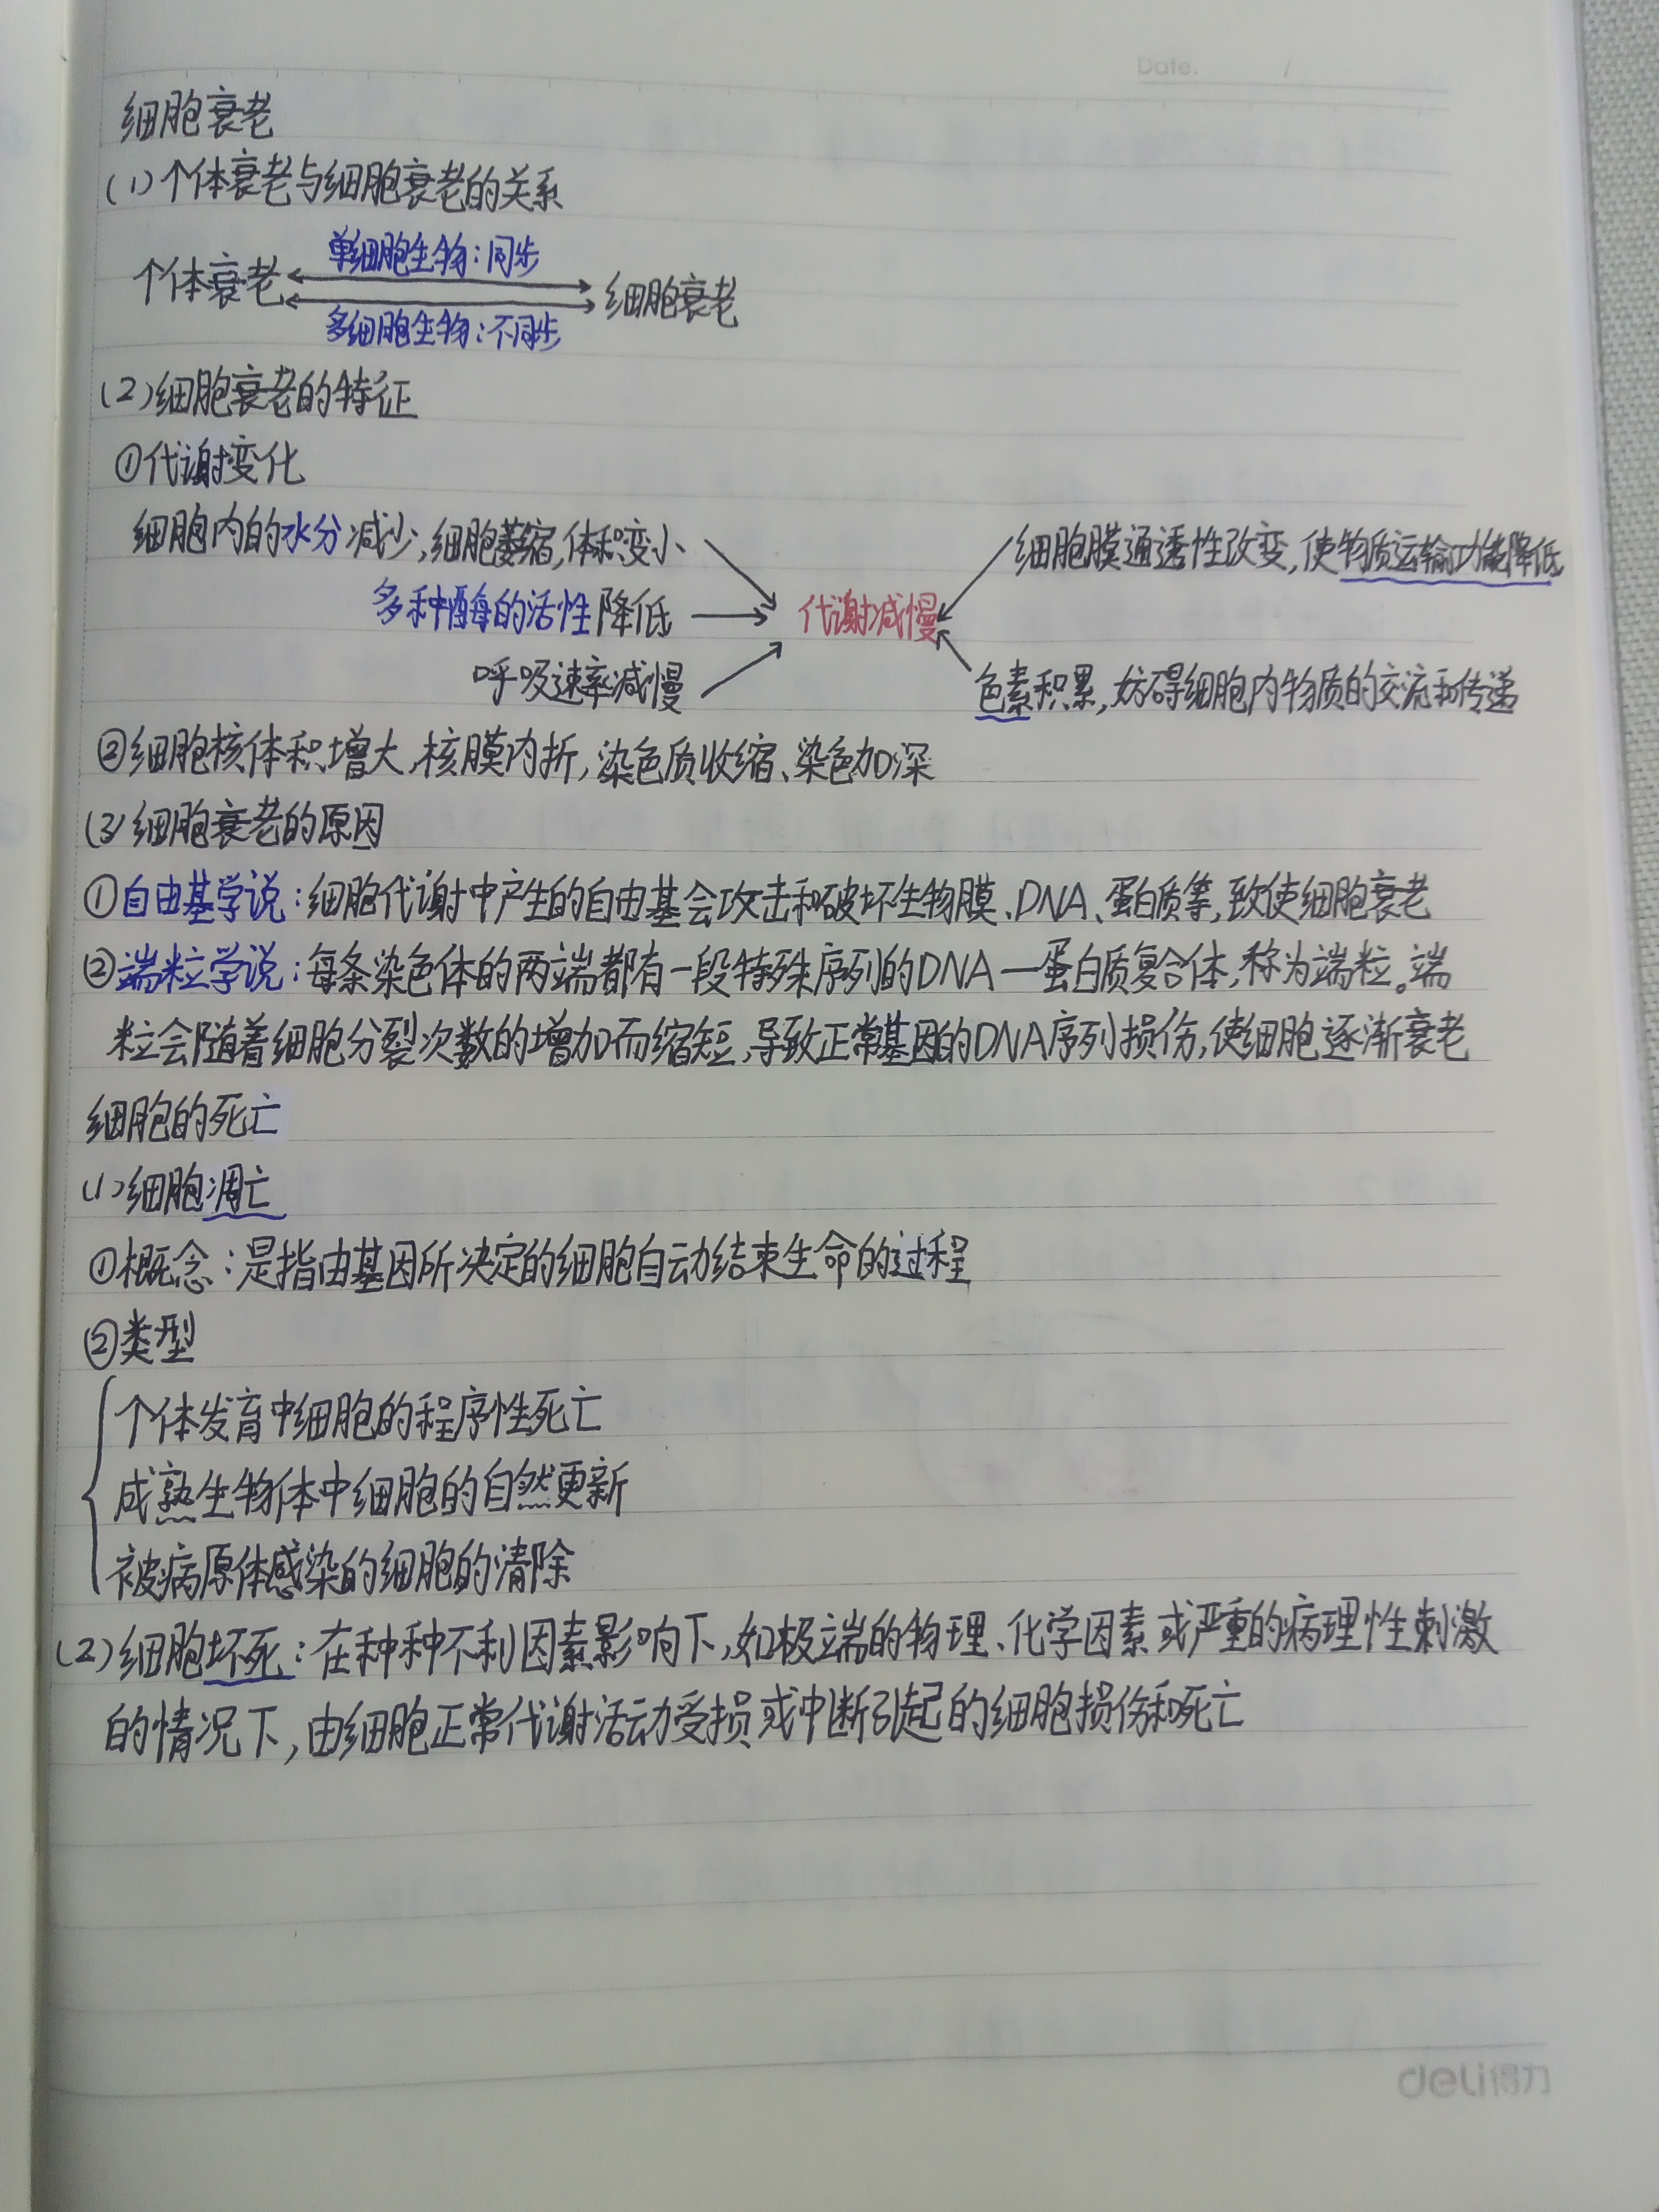 Date. /
细胞衰老
(1)个体衰老与细胞衰老的关系
单细胞生物:同步
个体衰老 细胞衰老
多细胞生物:不同步
(2)细胞衰老的特征
①代谢变化
细胞内的水分减少,细胞萎缩,体积变小
细胞膜通透性改变,使物质运输功能降低
多种酶的活性降低
代谢减慢
呼吸速率减慢
色素积累,妨碍细胞内物质的交流和传递
②细胞核体积增大,核膜内折,染色质收缩、染色加深
(3)细胞衰老的原因
①自由基学说:细胞代谢中产生的自由基会攻击和破坏生物膜、DNA、蛋白质等,致使细胞衰老
②端粒学说:每条染色体的两端都有一段特殊序列的DNA—蛋白质复合体,称为端粒。端
粒会随着细胞分裂次数的增加而缩短,导致正常基因的DNA序列损伤,使细胞逐渐衰老
细胞的死亡
(1)细胞凋亡
①概念:是指由基因所决定的细胞自动结束生命的过程
②类型
个体发育中细胞的程序性死亡
成熟生物体中细胞的自然更新
被病原体感染的细胞的清除
(2)细胞坏死:在种种不利因素影响下,如极端的物理、化学因素或严重的病理性刺激
的情况下,由细胞正常代谢活动受损或中断引起的细胞损伤和死亡
deli得力